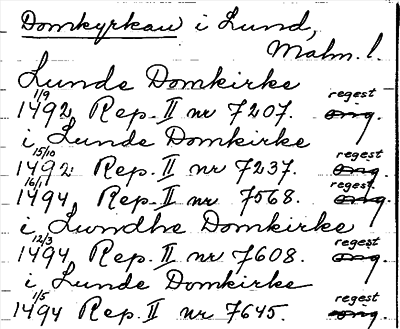 Domkyrkan i Lund,
Malm. l.
Lunde Domkirke
1/9 1492 Rep. II nr 7207. regest orig.
i Lunde Domkirke
15/10 1492 Rep. II nr 7237. regest orig.
16/1 1494 Rep. II nr 7568. regest. orig.
i Lundhe Domkirke
12/3 1494 Rep. II nr 7608. regest orig.
i Lunde Domkirke
1/5 1494 Rep. II nr 7645. regest orig.